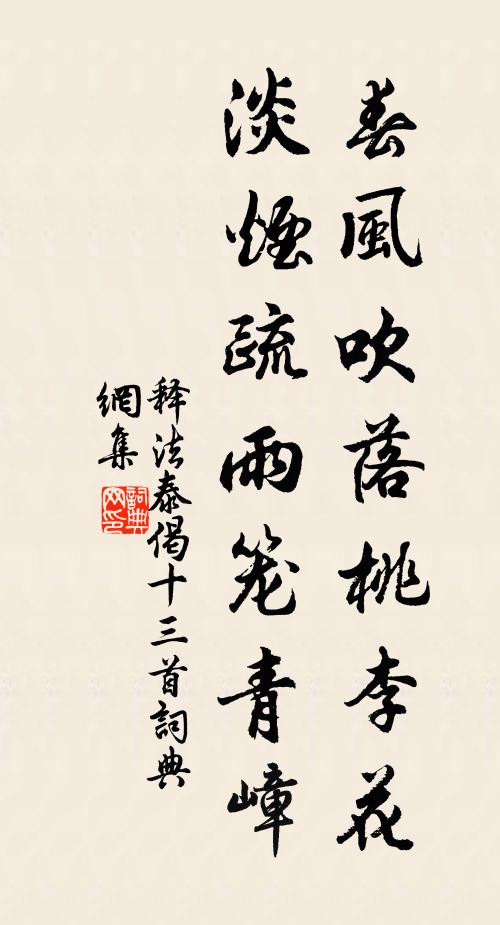 春風吹落桃李花
淡煙疏雨笼青嶂
释法泰偈十三首詞典
網集
詞典
网印